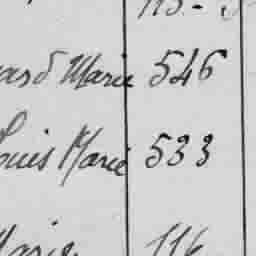 115 -
ard Marie 546
Louis Marie 533
Marie 116